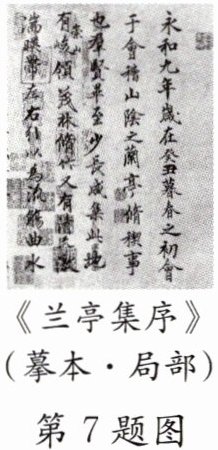 永和九年歲在癸丑暮春之初會
于會稽山陰之蘭亭脩稧事
也羣賢畢至少長咸集此地
有崇山峻領茂林脩竹又有清流激
湍暎帶左右引以為流觴曲水
《兰亭集序》
(摹本·局部)
第7题图